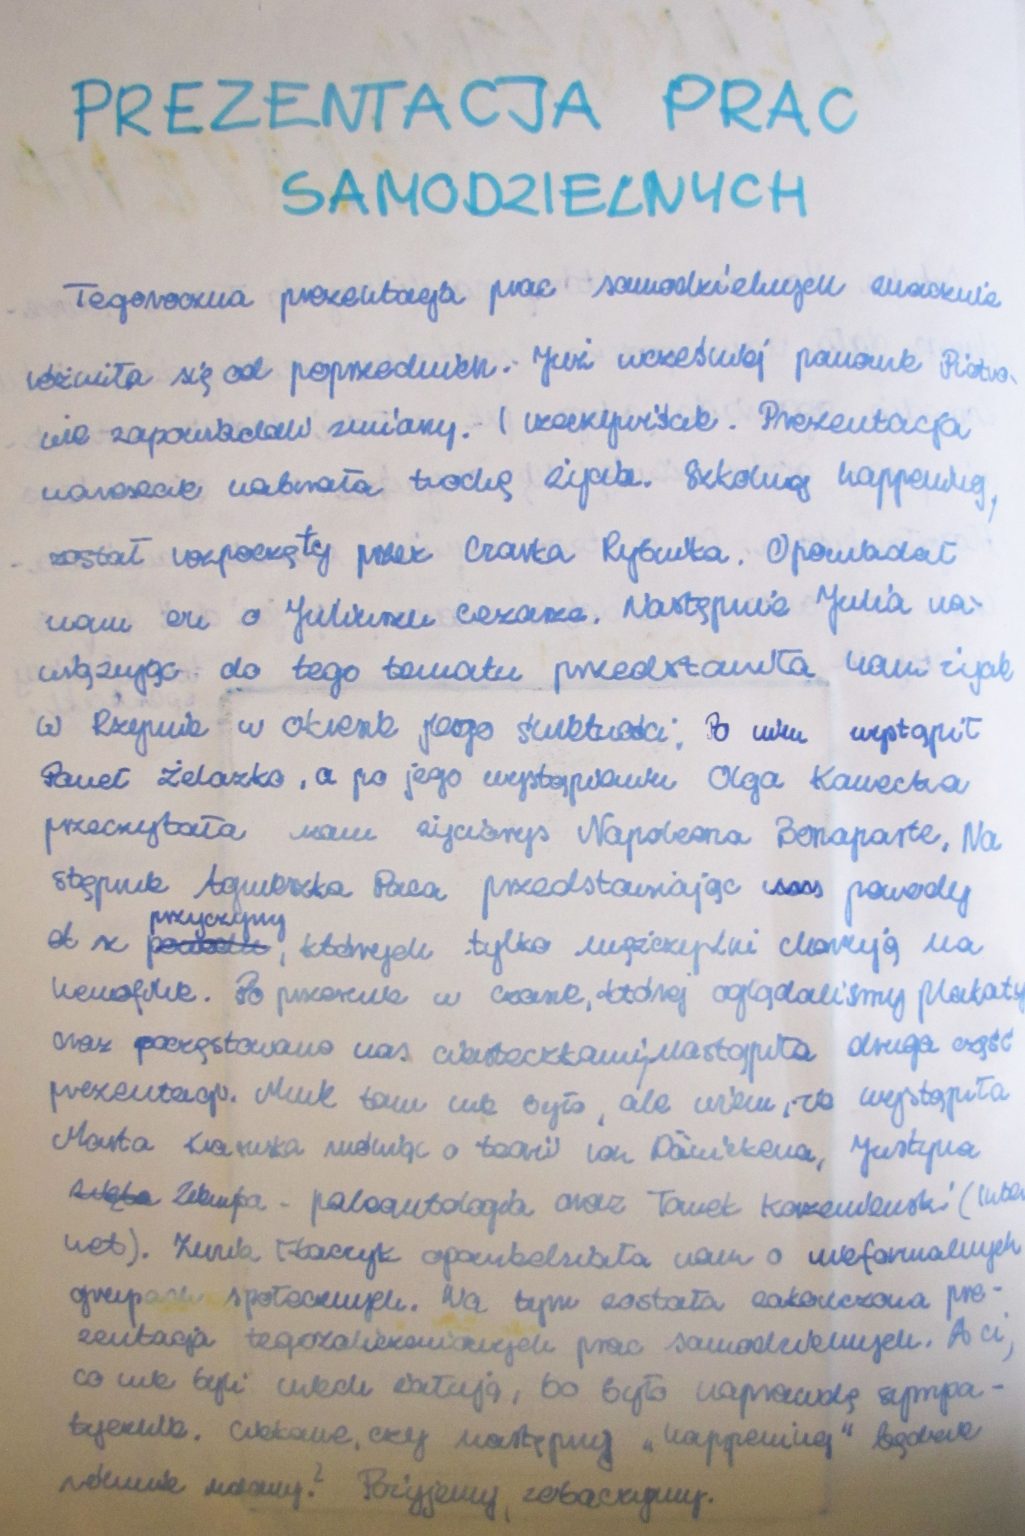 PREZENTACJA PRAC
SAMODZIELNYCH
Tegoroczna prezentacja prac samodzielnych znacznie
różniła się od poprzednich. Już wcześniej panowie Piotro-
wie zapowiadali zmiany. I rzeczywiście. Prezentacja
nareszcie nabrała trochę życia. Szkolny happening,
został rozpoczęty przez Czarka Rybnika. Opowiadał
nam on o Juliuszu Cezarze. Następnie Julia na-
wiązując do tego tematu przedstawiła nam życie
w Rzymie w okresie jego świetności. Po nim wystąpił
Paweł Żelazko, a po jego wystąpieniu Olga Kawecka
przeczytała nam życiorys Napoleona Bonaparte. Na
stępnie Agnieszka Paca przedstawiając nas powody
przyczyny
z, których tylko mężczyźni chorują na
hemofilie. Po przerwie w czasie, której oglądaliśmy plakaty
oraz poczęstowano nas ciasteczkami, nastąpiła druga część
prezentacji. Mnie tam nie było, ale wiem, że wystąpiła
Marta mówiąc o teorii von Dänikena, Justyna
- paleontologia oraz Tomek (Inter
net). opowiedziała nam o nieformalnych
grupach społecznych. Na tym została zakończona pre-
zentacja prac samodzielnych. A ci,
co nie byli niech żałują, bo było naprawdę sympa-
tycznie. Ciekawe, czy następny "happening" będzie
równie udany? Pożyjemy, zobaczymy.